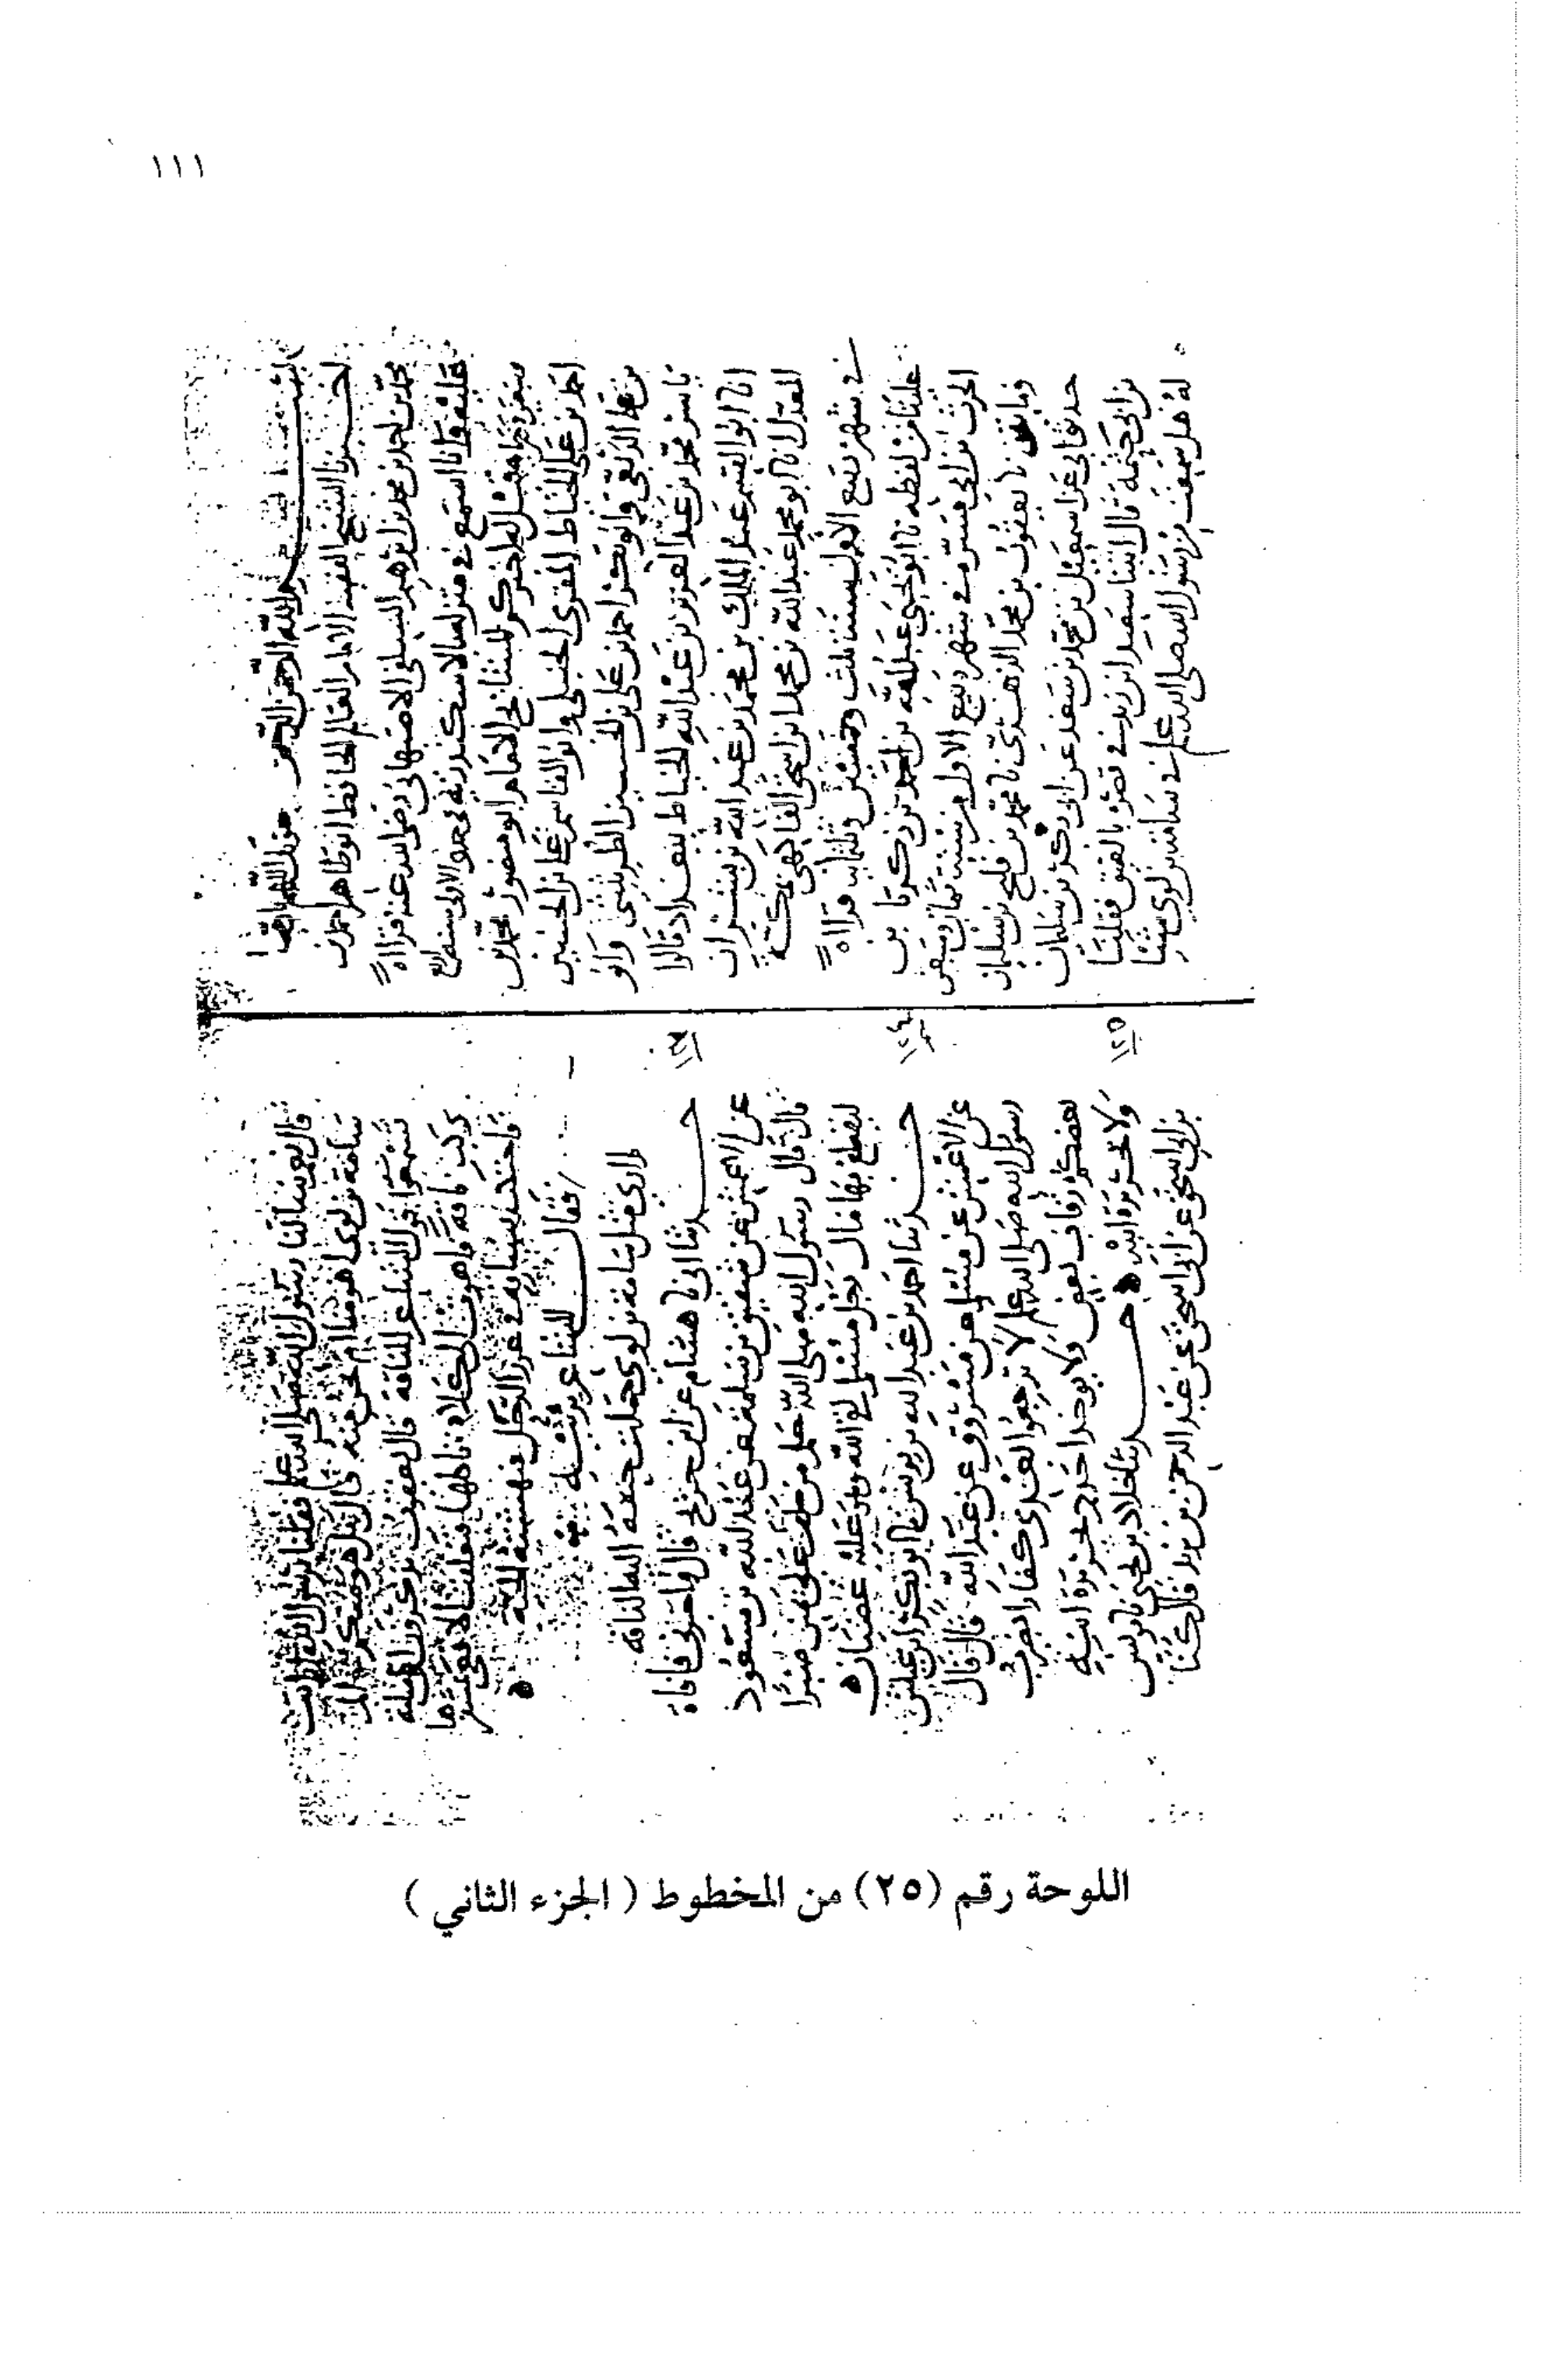 ١١١
بسم الله الرحمن الرحيم
اخبرنا الشيخ الفقيه الامام العالم الحافظ ابو طاهر احمد بن
محمد بن احمد بن محمد بن ابرهيم السلفي الاصبهاني رضي الله عنه قراءة
عليه وانا اسمع في منزله بالاسكندرية في جمادى الاولى سنة
ببغداد الامام ابو منصور محمد بن
احمد بن علي الخياط المقرى الحنبلي وابو القاسم علي بن الحسين
بن عبد الله الربعي وابو بكر احمد بن علي بن الحسين الطريثيثي وابو
ياسر محمد بن عبد العزيز بن عبد الله الخياط ببغداد قالوا
انا ابو القسم عبد الملك بن محمد بن عبد الله بن بشران
المعدل انا ابو محمد عبد الله بن محمد بن اسحق الفاكهي بمكة
في شهر ربيع الاول سنة ثلث وخمسين وثلثمائة قراءة
علينا من لفظه نا ابو يحيى عبد الله بن احمد بن زكريا بن
الحرث بن ابي مسرة في شهر ربيع الاول من سنة ثمان وسبعين
ومايتين نا يعقوب بن محمد الزهري نا محمد بن فليح بن سليمان
حدثني ابي عن اسمعيل بن محمد بن سعد عن ابي بكر بن سليمان
بن ابي حثمة قال اتينا سعيد ابن زيد في قصره بالعقيق فقلنا
له هل سمعت من رسول الله صلى الله عليه في سامة بن لوي شيئا
قال نعم سالنا رسول الله صلى الله عليه فقلنا يرسول الله انت
سامة بن لوي اهو منا ام نحن منه قال بل هو منا
تسمعوا قول الشاعر للناقة قال يعقوب
ركب ناقة فاهوت الى الكلا
فاخذت بساقه في غرز الرحل فنهشته الحية
فقال الشاعر يرثيه
لا ارى مثل سامة بن لوي حملت حتفه اليه الناقة
١٢٣
حدثنا ابي نا هشام عن ابن جريج قال واخبرني
عن الاعمش عن شقيق بن سلمة عن عبد الله بن مسعود
قال قال رسول الله صلى الله عليه من حلف على يمين صبرا
ليقطع بها مال رجل مسلم لقي الله وهو عليه غضبان
١٢٤
حدثنا احمد بن عبد الله بن يونس نا ابو بكر ابن عياش
عن الاعمش عن مسلم عن مسروق عن عبد الله قال قال
رسول الله صلى الله عليه لا ترجعوا بعدي كفارا يضرب
بعضكم رقاب بعض ولا يوخذ احد بجريرة ابيه
ولا بجريرة
١٢٥
حدثنا خلاد بن يحيى نا يونس
بن ابي اسحق عن ابي اسحق عن عبد الرحمن بن يزيد قال كنا
اللوحة رقم (٢٥) من المخطوط ( الجزء الثاني )